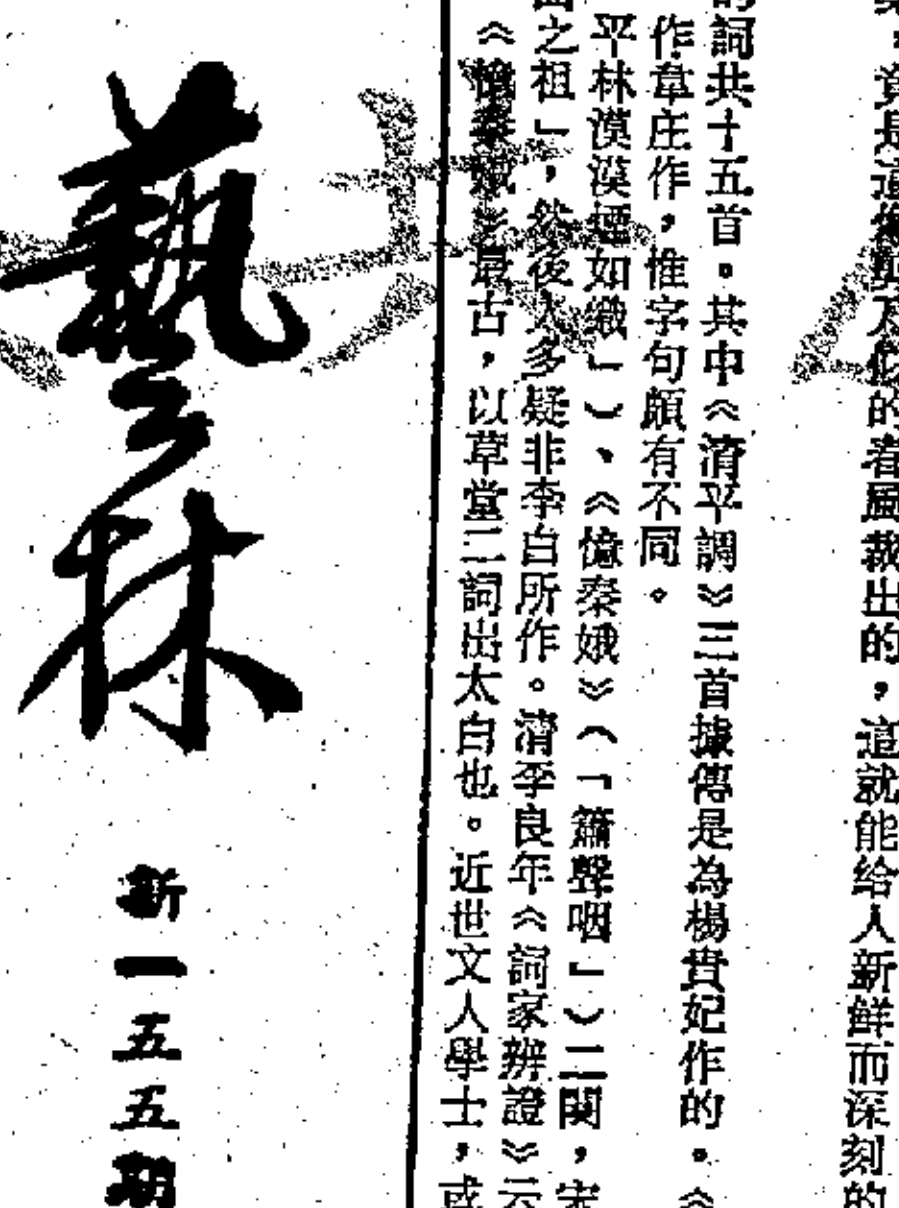 這就能给人新鮮而深刻的
的詞共十五首。其中《清平調》三首據傳是為楊貴妃作的。《
作韋庄作，惟字句頗有不同。
平林漠漠煙如織」）、《憶秦娥》（「簫聲咽」）二闋，宋
之祖」，然後人多疑非李白所作。清李良年《詞家辨證》云
《憶秦娥》最古，以草堂二詞出太白也。近世文人學士，或
藝林
新一五五期